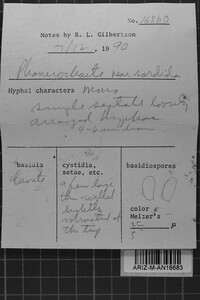 No. 16860
Notes by R. L. Gilbertson
7/12, 1990
Phanerochaete
Hyphal characters
simple septate loosely
arranged hyphae
basidia
clavate
cystidia,
setae, etc.
a few large
thin-walled
lightly
incrusted at
the tip
basidiospores
color
Melzer's
µ
ARIZ-M-AN16683